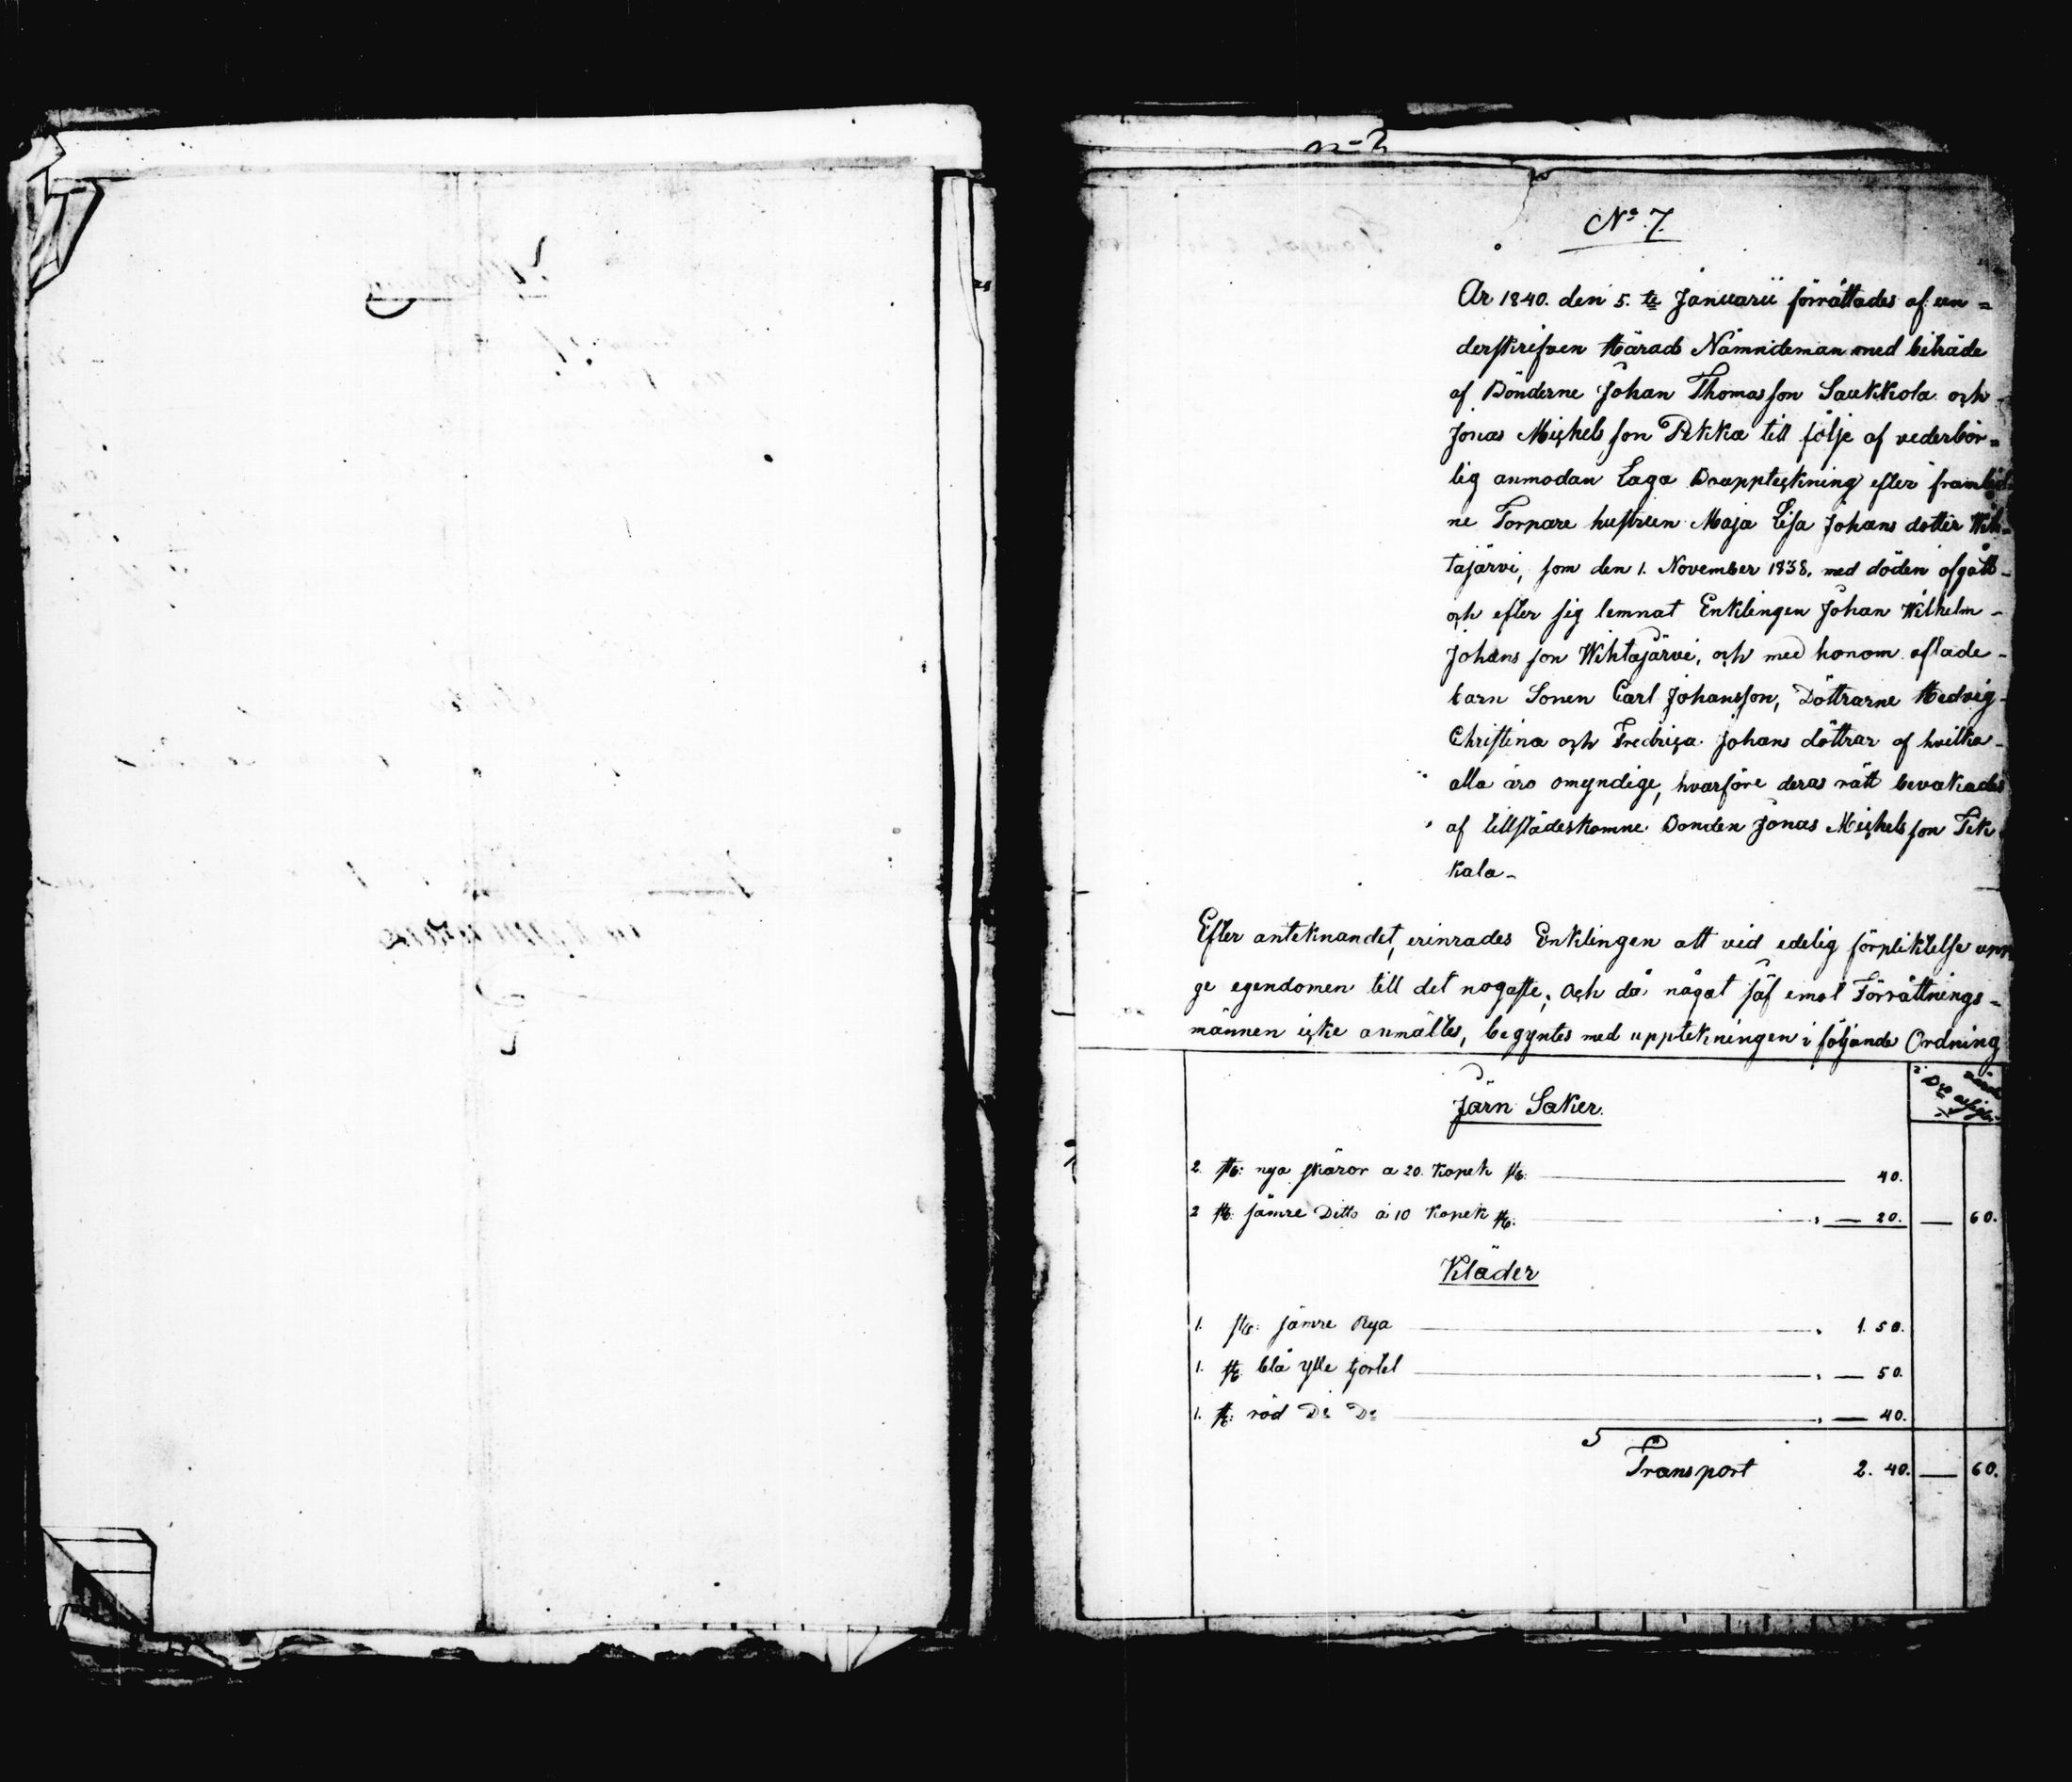 n=2
No 7.
År 1840. den 5.te Januarii förrättades af un=
derskrifven Härads Nämndeman med biträde
af Bönderne Johan Thomasson Saukkola och
Jonas Michelsson Pekka till följe af vederbör=
lig anmodan Laga Bouppteckning efter framlid=
ne Torpare hustrun Maja Lisa Johans dotter Wih=
tajärvi, som den 1. November 1838. med döden afgått
och efter sig lemnat Enklingen Johan Wilhelm
Johans son Wihtajärvi, och med honom aflade
barn Sonen Carl Johansson, Döttrarne Hedvig
Christina och Fredrica Johans döttrar af hvilka
alla äro omyndige, hvarföre deras rätt bevakades
af tillstädeskomne Bonden Jonas Michelsson Pek
kala
Efter anteknandet, erinrades Enklingen att vid edelig förpliktelse upp
ge egendomen till det nogaste; Och då något jäf emot Förrättnings=
männen icke anmältes, begyntes med upptekningen i följande Ordning
Järn Saker.
2. st: nya skäror a 20. Kopek st: 40.
2 st: sämre Ditto à 10 Kopek st: — 20. — 60.
Kläder
1. st: sämre Rya 1. 50.
1. st: blå ylle kjortel — 50.
1. st: röd Do Do — 40.
Transport 2. 40. — 60.